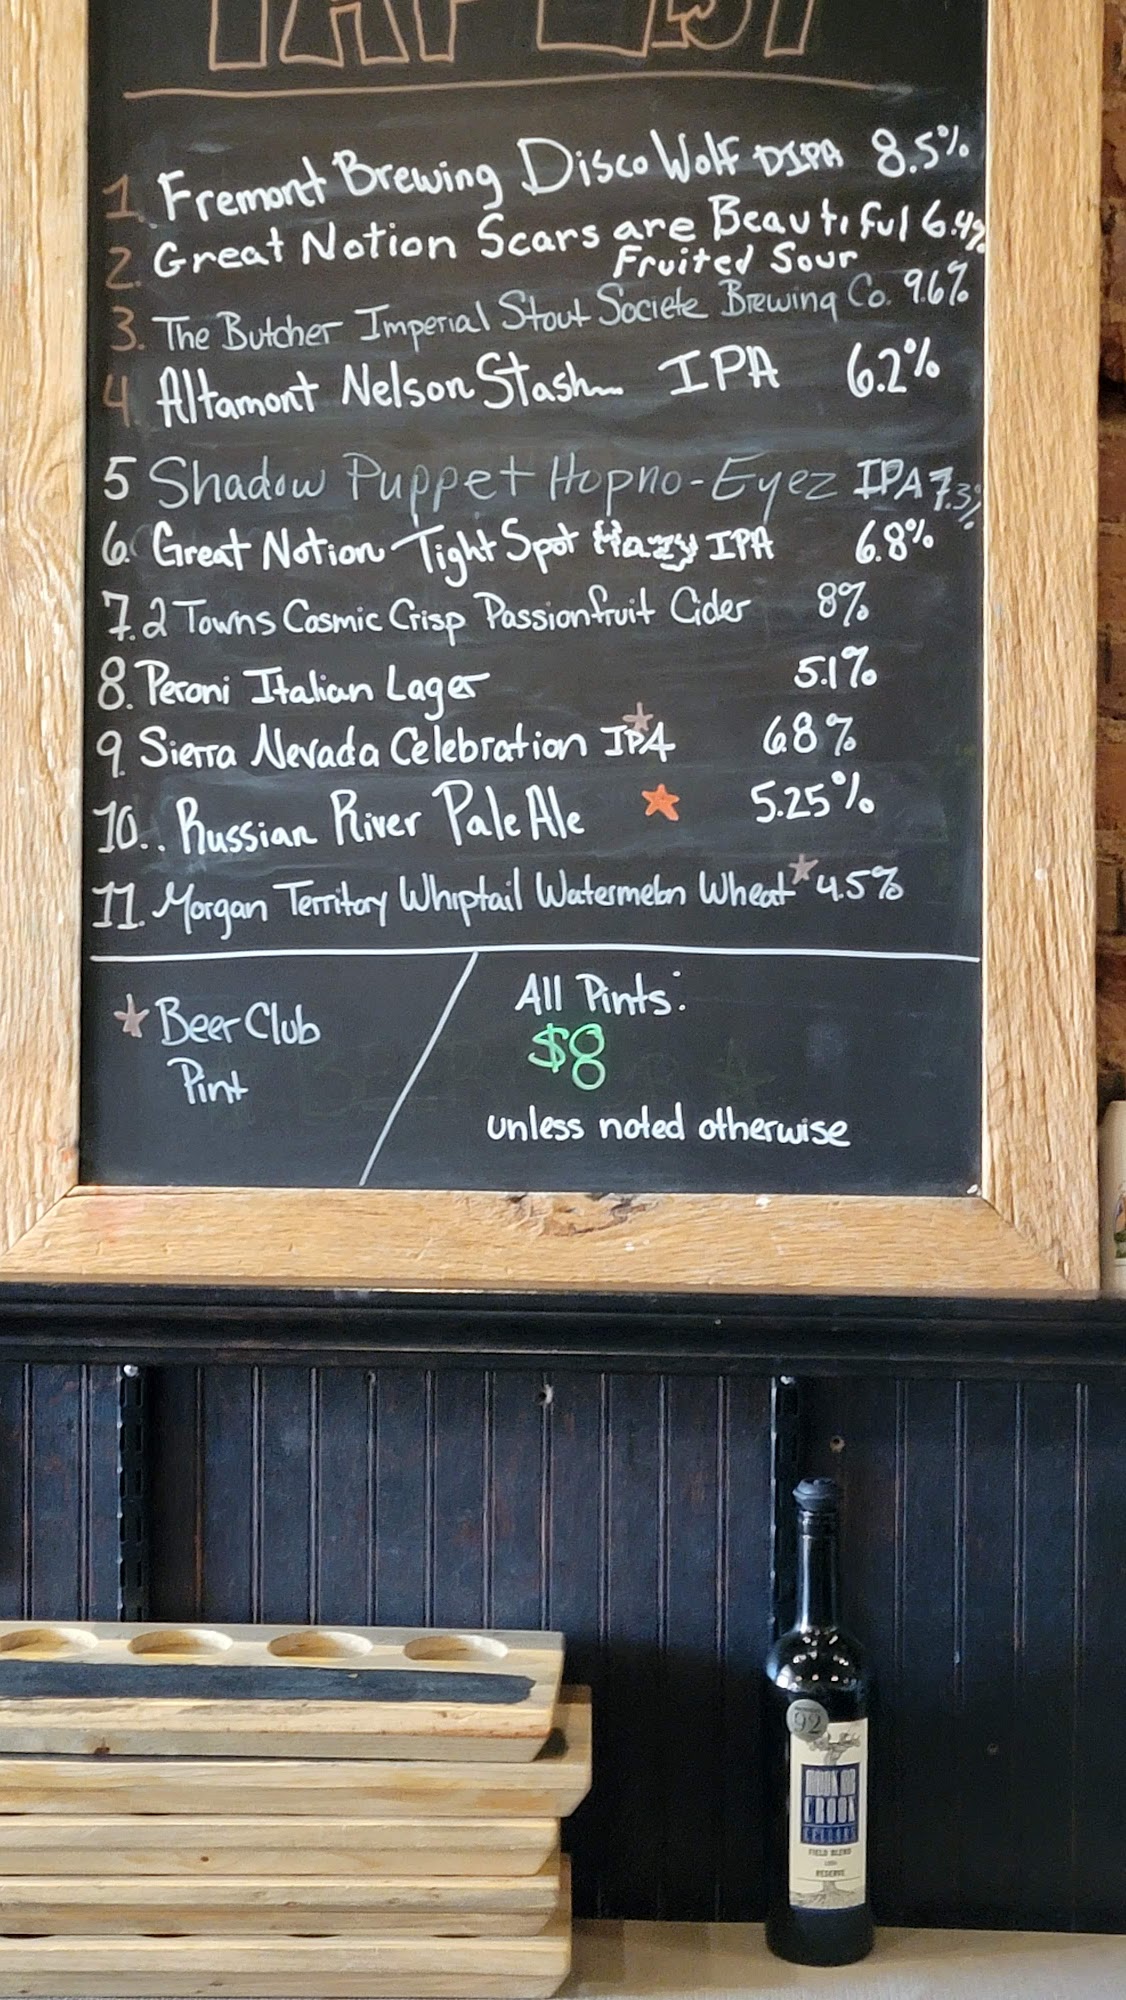 TAP LIST
1. Fremont Brewing Disco Wolf DIPA 8.5%
2. Great Notion Scars are Beautiful 6.4%
Fruited Sour
3. The Butcher Imperial Stout Societe Brewing Co. 9.6%
4 Altamont Nelson Stash IPA 6.2%
5 Shadow Puppet Hopno-Eyez IPA 7.3%
6. Great Notion Tight Spot Hazy IPA 6.8%
7. 2 Towns Cosmic Crisp Passionfruit Cider 8%
8. Peroni Italian Lager 5.1%
9. Sierra Nevada Celebration IPA 6.8%
10.. Russian River Pale Ale 5.25%
11. Morgan Territory Whiptail Watermelon Wheat 4.5%
Beer Club
Pint
All Pints:
$8
unless noted otherwise
92
HOOK OR
CROOK
CELLARS
FIELD BLEND
RESERVE